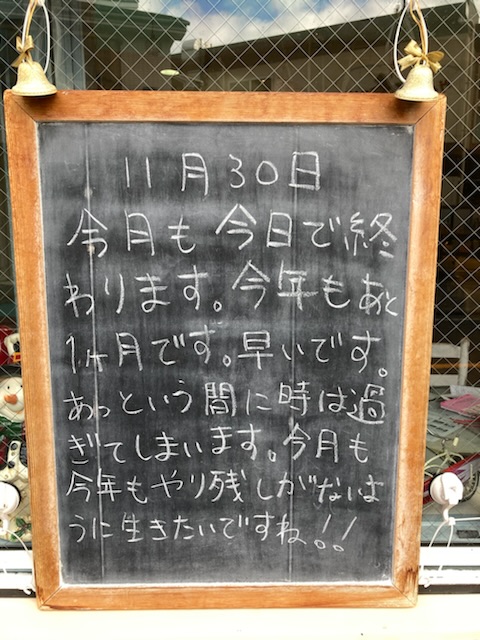 11月30日
今月も今日で終
わります。今年もあと
1ヶ月です。早いです。
あっという間に時は過
ぎてしまいます。今月も
今年もやり残しがないよ
うに生きたいですね!!